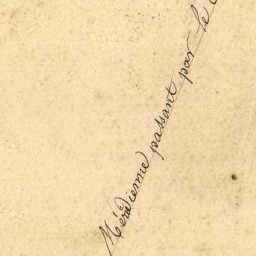 Méridienne passant par le